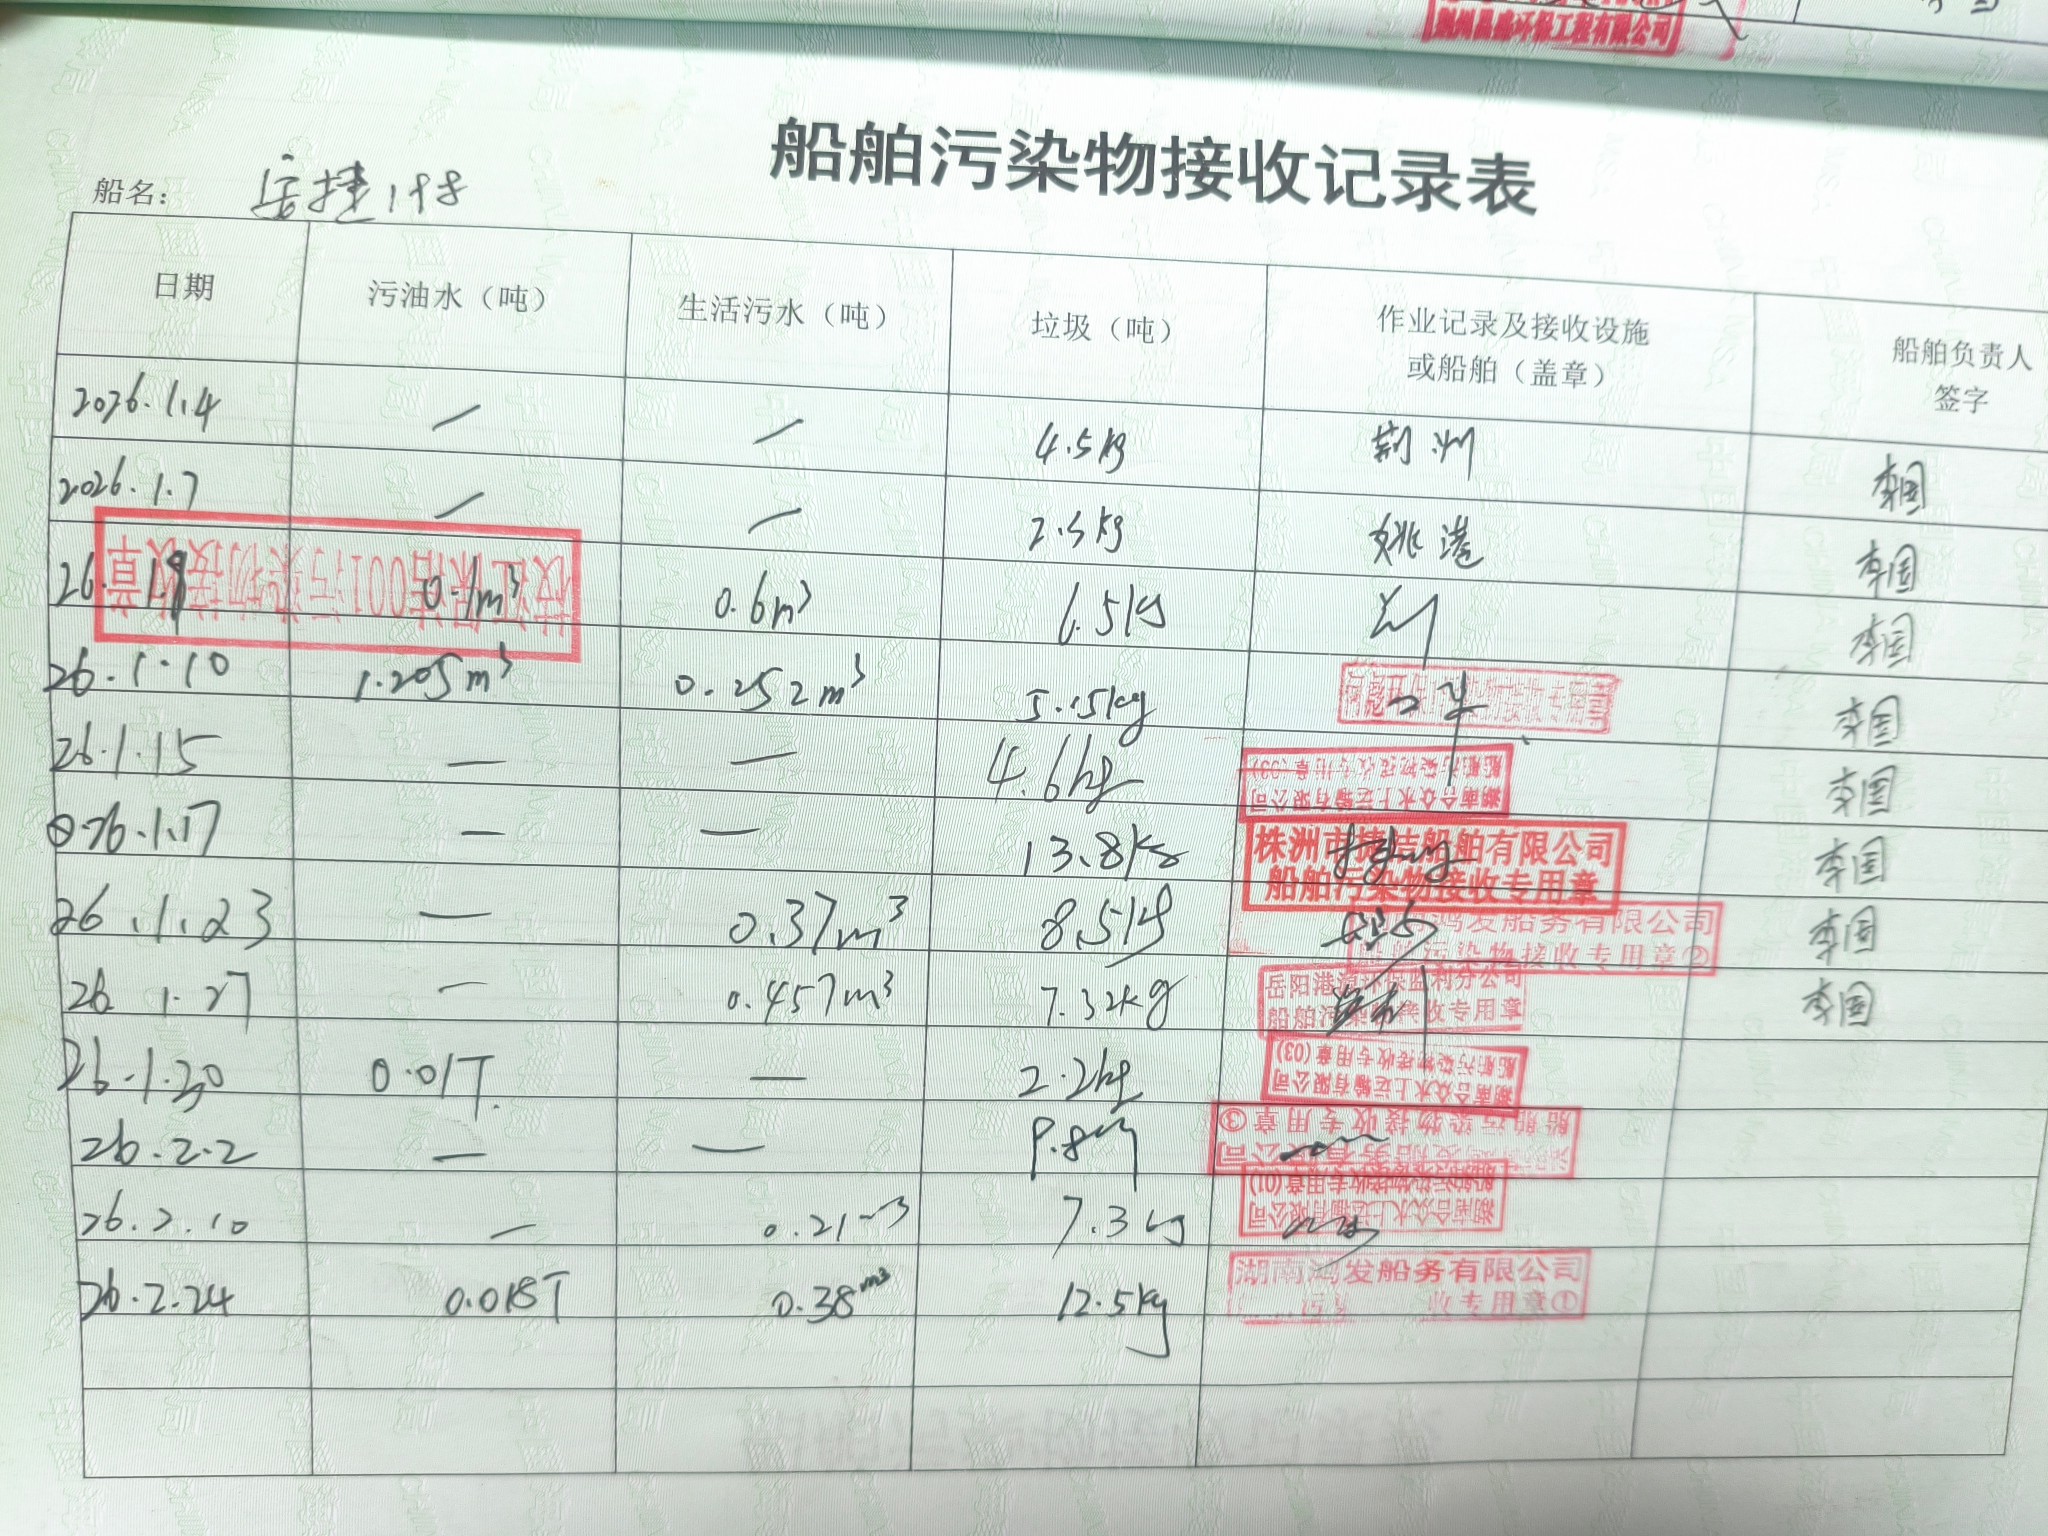 荆州昌盛环保工程有限公司
船舶污染物接收记录表
船名： 岳捷198
日期 污油水（吨） 生活污水（吨） 垃圾（吨） 作业记录及接收设施或船舶（盖章） 船舶负责人签字
2026.1.4 — — 4.5kg 荆州 李国
2026.1.7 — — 2.5kg 姚港 李国
26.1.9 0.1m³ 0.6m³ 6.5kg 李国
污染物接收章
26.1.10 1.205m³ 0.252m³ 5.15kg 李国
26.1.15 — — 4.6kg 李国
湖南合众水上运输有限公司
船舶污染物接收专用章(03)
2026.1.17 — — 13.8kg 李国
株洲市捷洁船舶有限公司
船舶污染物接收专用章
26.1.23 — 0.37m³ 8.5kg 李国
鸿发船务有限公司
船舶污染物接收专用章②
26.1.27 — 0.457m³ 7.32kg 李国
岳阳港湾环保监利分公司
船舶污染物接收专用章
26.1.30 0.01T — 2.2kg
湖南合众水上运输有限公司
船舶污染物接收专用章(03)
26.2.2 — — 9.8kg
船舶污染物接收专用章③
26.2.10 — 0.21m³ 7.3kg
湖南合众水上运输有限公司
船舶污染物接收专用章(01)
26.2.24 0.018T 0.38m³ 12.5kg
湖南鸿发船务有限公司
收专用章①